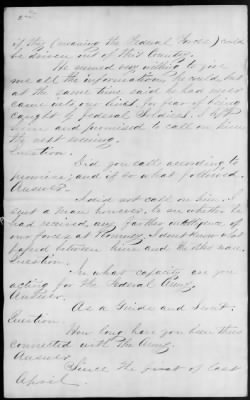 if they (meaning the Federal Forces) could
be driven out of this Country.
He seemed very willing to give
me all the information he could but
at the same time said he had not
came into my lines for fear of being
caught by Federal Soldiers. I left
him and promised to call on him
the next evening.
Question.
Did you call according to
promise; and if so what followed.
Answer.
I did not call on him. I
sent a man however to see whether he
had received any further intelligence of
any forces at I do not know what
passed between him and the other man.
Question.
In what capacity are you
acting for the Federal Army.
Answer.
As a Guide and Scout.
Question.
How long have you been thus
connected with the Army.
Answer.
Since the first of last
April.